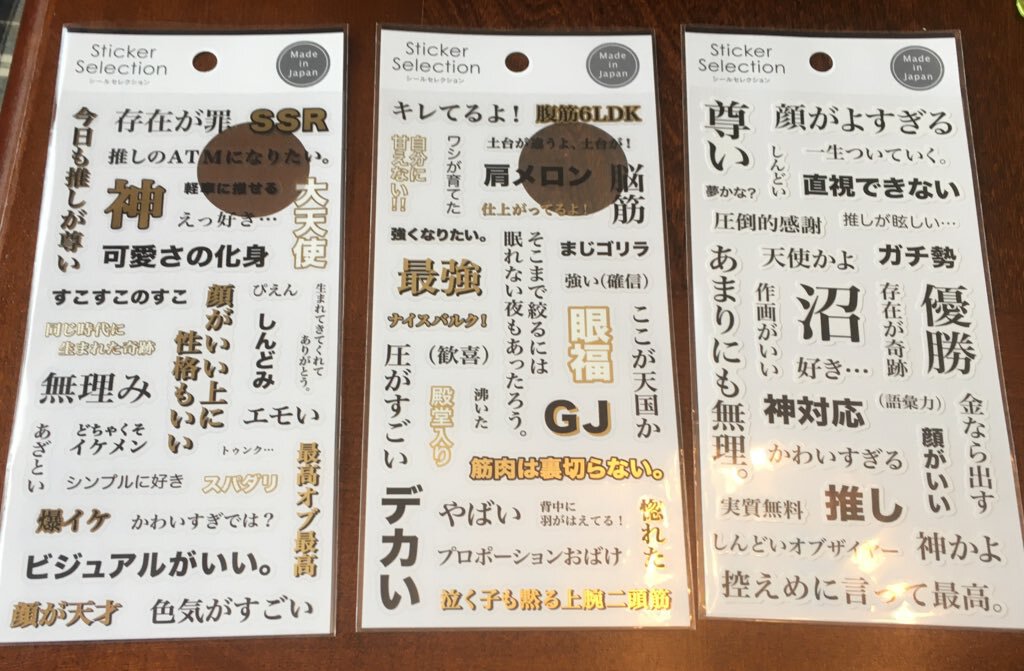 Sticker
Selection
シールセレクション
Made
in
Japan
今日も推しが尊い
存在が罪
SSR
推しのATMになりたい。
神
軽率に推せる
えっ好き…
大天使
可愛さの化身
すこすこのすこ
顔がいい上に
性格もいい
ぴえん
生まれてきてくれて
ありがとう。
同じ時代に
生まれた奇跡
しんどみ
無理み
エモい
あざとい
どちゃくそ
イケメン
トゥンク…
シンプルに好き
スパダリ
最高オブ最高
爆イケ
かわいすぎでは？
ビジュアルがいい。
顔が天才
色気がすごい
Sticker
Selection
シールセレクション
Made
in
Japan
キレてるよ！
腹筋6LDK
自分に
甘えない!!
ワシが育てた
土台が違うよ、土台が！
肩メロン
脳筋
仕上がってるよ！
強くなりたい。
そこまで絞るには
眠れない夜もあったろう。
まじゴリラ
最強
強い（確信）
ナイスバルク！
眼福
ここが天国か
圧がすごい
（歓喜）
殿堂入り
沸いた
GJ
筋肉は裏切らない。
デカい
やばい
背中に
羽がはえてる！
惚れた
プロポーションおばけ
泣く子も黙る上腕二頭筋
Sticker
Selection
シールセレクション
Made
in
Japan
尊い
顔がよすぎる
しんどい
一生ついていく。
夢かな？
直視できない
圧倒的感謝
推しが眩しい…
あまりにも無理。
天使かよ
ガチ勢
作画がいい
沼
存在が奇跡
優勝
好き…
神対応
（語彙力）
金なら出す
かわいすぎる
顔がいい
実質無料
推し
しんどいオブザイヤー
神かよ
控えめに言って最高。